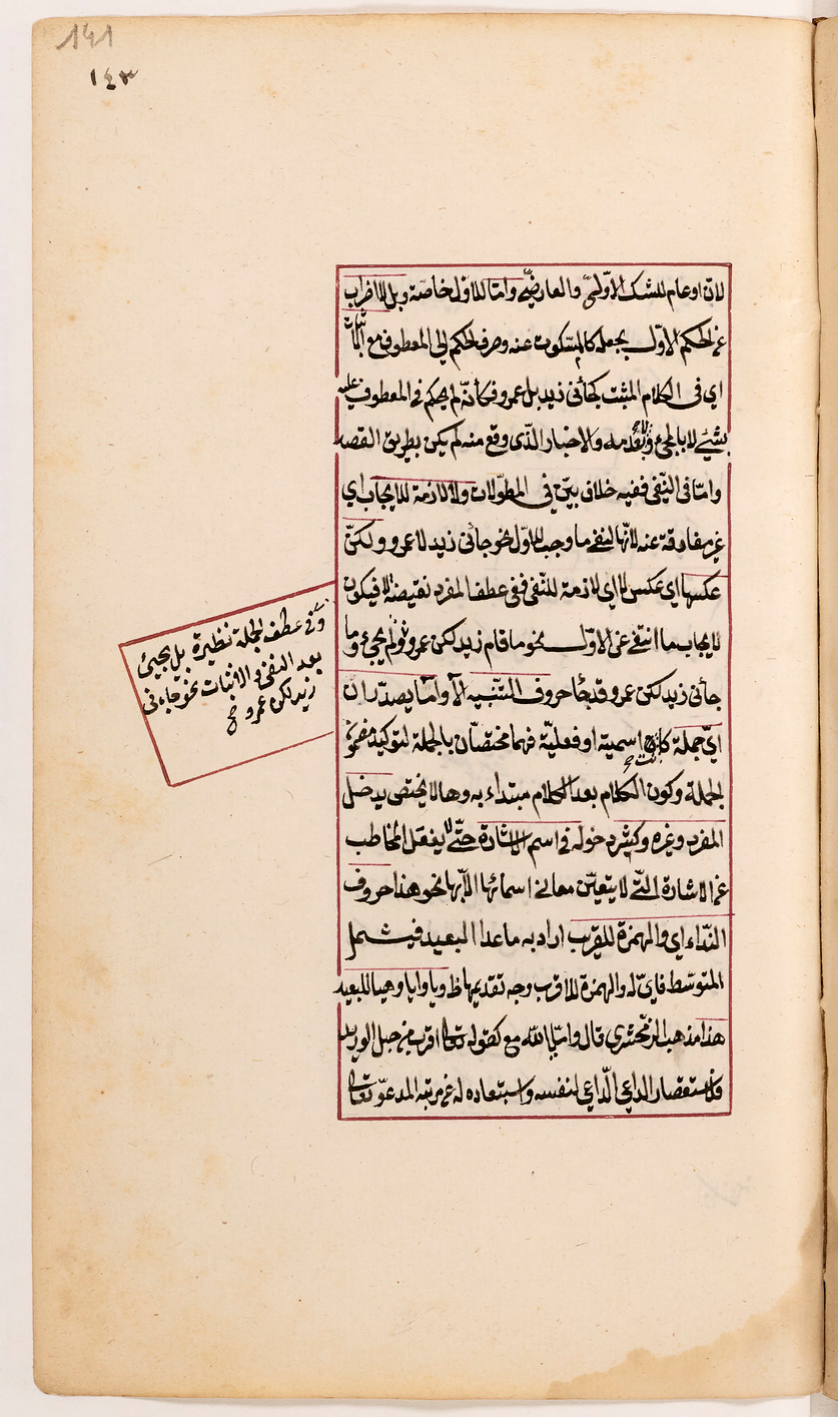 141
١٤٣
لانّ او عام للشك الاوّليّ والعارضيّ وامّا للاوّل خاصّة وبل للاضراب
عن الحكم الاوّل بجعله كالمسكوت عنه وصرف الحكم الى المعطوف مع
اى فى الكلام المثبت كجائنى زيد بل عمرو فكأنّه لم يحكم فى المعطوف عليه
بشيئ لا بالمجئ وبعدمه والاخبار الّذى وقع منه لم يكن بطريق القصد
وامّا فى النّفى ففيه خلاف بيّن فى المطوّلات ولا لازمة للايجاب اى
غير مفارقة عنه لانّها لنفى ما وجب للاوّل نحو جائنى زيد لا عمرو ولكنّ
عكسها اى عكس لا اى لازمة للنّفى ففى عطف المفرد نقيضة لا فيكون
لايجاب ما انتفى عن الاوّل نحو ما قام زيد لكن عمرو ونحو لم يجئ وما
جائنى زيد لكن عمرو قد جاء حروف التّنبيه الا واما يصدّران
اىّ جملة كانت اسمية او فعليّة فهما مختصّان بالجملة لتوكيد مضمون
الجملة وكون الكلام بعد الكلام مبتداء به وها لا يختصّ يدخل
المفرد وغيره وكثير دخوله فى اسم الاشارة حتّى لا يغفل المخاطب
عن الاشارة الّتى لا يتعيّن معانى اسمائها الّا بها نحو هذا حروف
النّداء اى والهمزة للقريب اراد به ما عدا البعيد فيشمل
المتوسّط فاىّ له والهمزة للاقرب وجه تقديمها ظ ويا وايا وهيا للبعيد
هذا مذهب الزمخشرى قال وامّا يا الله مع كقوله تعالى اقرب من حبل الوريد
فلاستقصار الداعى الّداعى لنفسه واستبعاده له عن مرتبة المدعوّ تعالى
وفى عطف الجملة نظيرة بل يجيئ
بعد النفى والاثبات نحو جاءنى
زيد لكن عمرو